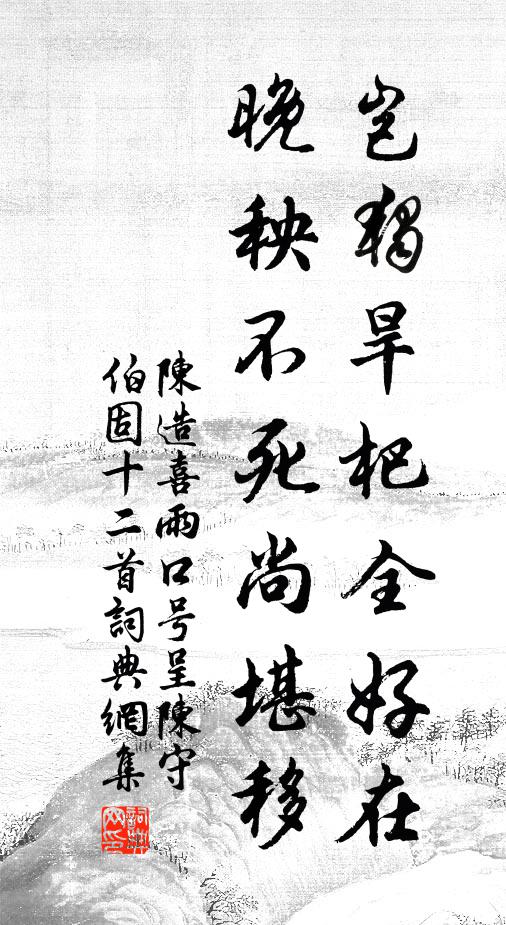 豈獨旱杷全好在
晚秧不死尚堪移
陳造喜雨口号呈陳守
伯固十二首詞典網集